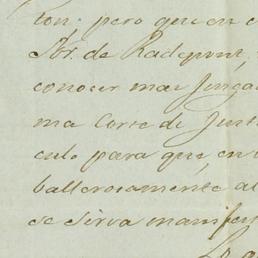 ton: pero que en c
Sr. de Radepont,
conocer mas Juzga
ma Corte de Just
culo para que, en
ballerosamente al
se sirva manifes